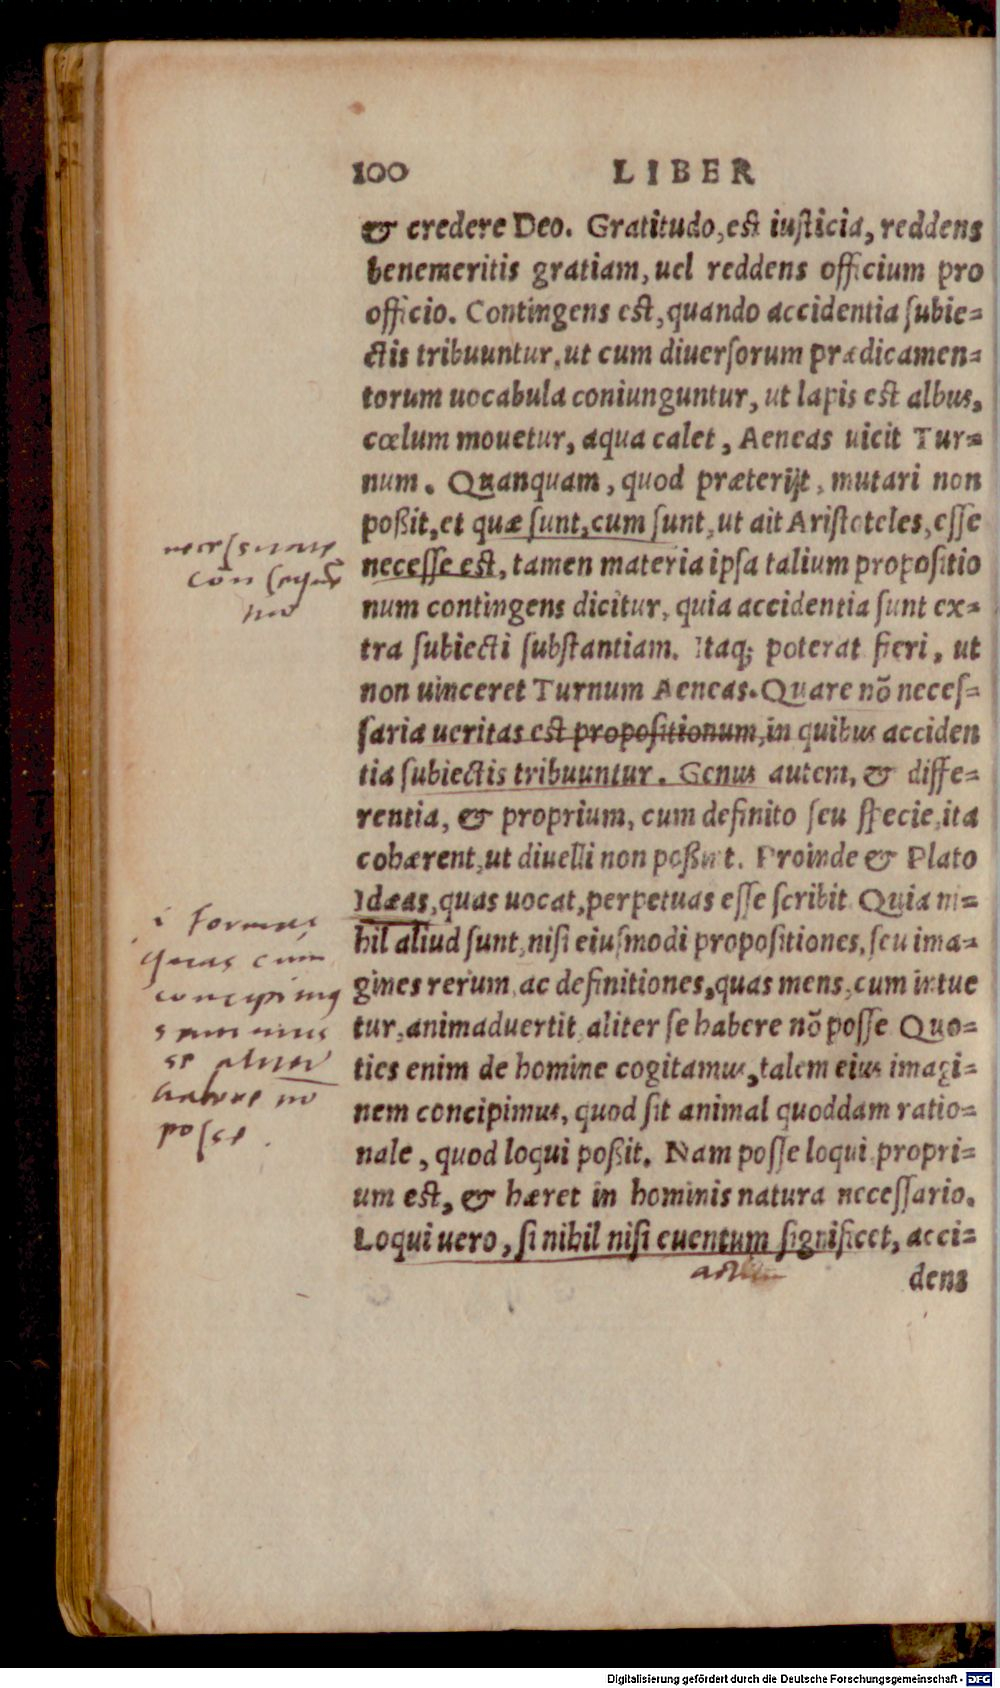 100 LIBER
& credere Deo. Gratitudo, est iusticia, reddens
benemeritis gratiam, uel reddens officium pro
officio. Contingens est, quando accidentia subie=
ctis tribuuntur, ut cum diuersorum prædicamen=
torum uocabula coniunguntur, ut lapis est albus,
cœlum mouetur, aqua calet, Aeneas uicit Tur=
num. Quanquam, quod præterijt, mutari non
poßit, et quæ sunt, cum sunt, ut ait Aristoteles, esse
necesse est, tamen materia ipsa talium propositio
num contingens dicitur, quia accidentia sunt ex=
tra subiecti substantiam. Itaq; poterat fieri, ut
non uinceret Turnum Aeneas. Quare nõ neces=
saria ueritas est propositionum, in quibus acciden
tia subiectis tribuuntur. Genus autem, & diffe=
rentia, & proprium, cum definito seu specie, ita
cohærent, ut diuelli non poßint. Proinde & Plato
Idæas, quas uocat, perpetuas esse scribit. Quia ni=
hil aliud sunt, nisi eiusmodi propositiones, seu ima=
gines rerum, ac definitiones, quas mens, cum intue
tur, animaduertit, aliter se habere nõ posse. Quo=
ties enim de homine cogitamus, talem eius imagi=
nem concipimus, quod sit animal quoddam ratio=
nale, quod loqui poßit. Nam posse loqui, propri=
um est, & hæret in hominis natura necessario.
Loqui uero, si nihil nisi euentum significet, acci=
dens
i formas
quas cum
concipimq
se aliter
habere nõ
posse.
Digitalisierung gefördert durch die Deutsche Forschungsgemeinschaft - DFG